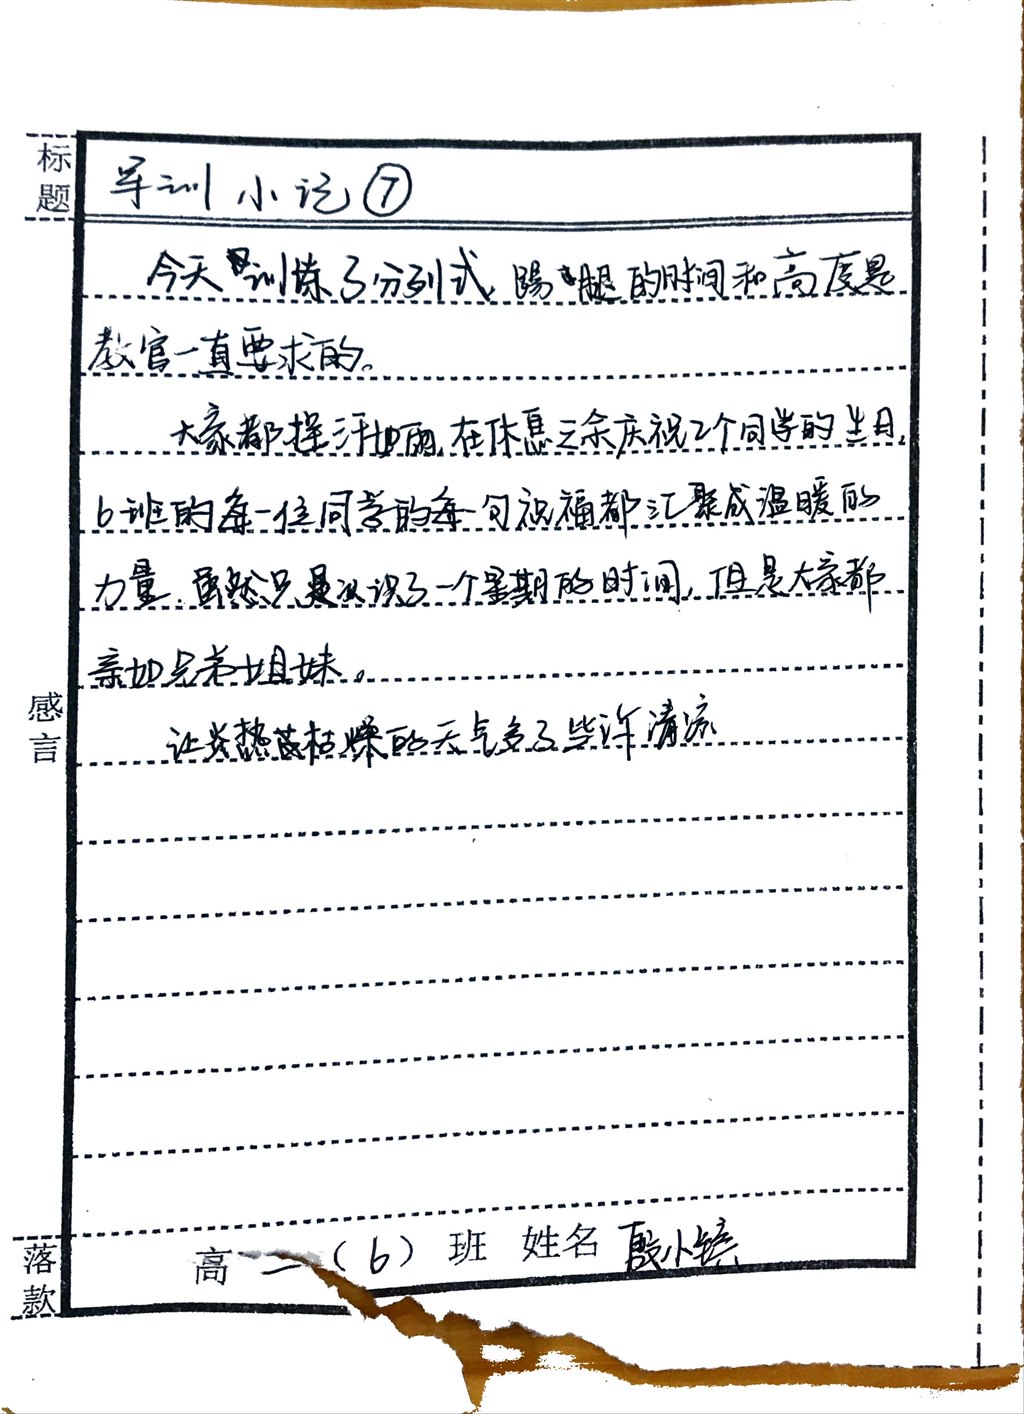 标题
军训小记⑦
今天训练了分列式,踢腿的时间和高度是
教官一直要求的。
大家都挥汗如雨,在休息之余庆祝2个同学的生日,
6班的每一位同学的每一句祝福都汇聚成温暖的
力量.虽然只是认识了一个星期的时间,但是大家都
亲如兄弟姐妹。
感言
让炎热枯燥的天气多了些许清凉
落款
高二(6)班 姓名 殷小